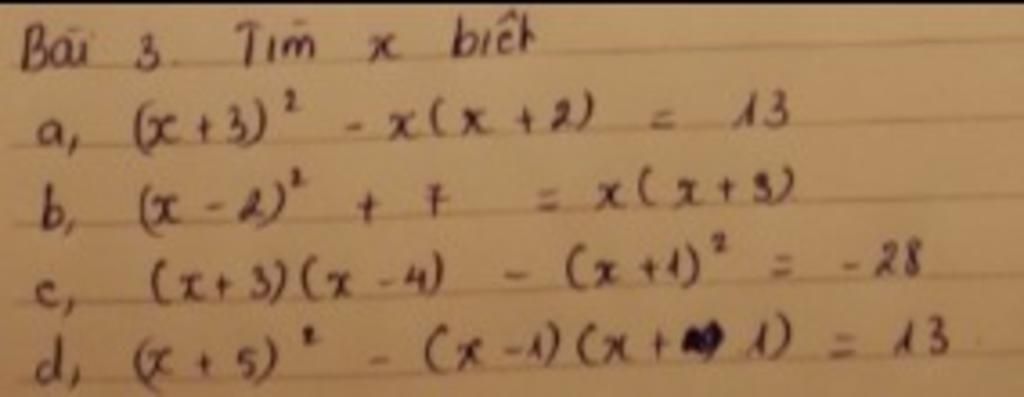 Bài 3. Tìm x biết
a, (x+3)² - x(x+2) = 13
b, (x-2)² + 7 = x(x+3)
c, (x+3)(x-4) - (x+1)² = -28
d, (x+5)² - (x-1)(x+1) = 13